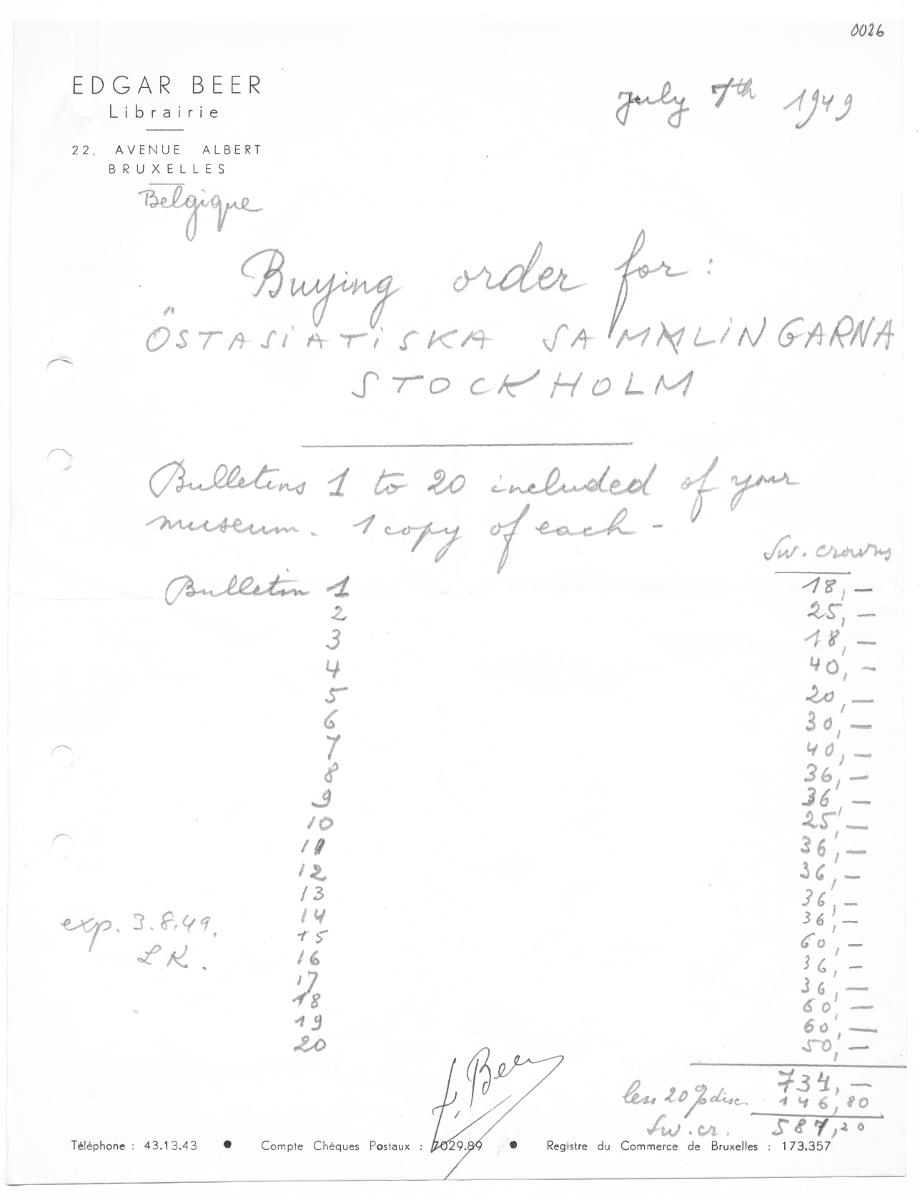 0026
EDGAR BEER
Librairie
22, AVENUE ALBERT
BRUXELLES
Belgique
July 7th 1949
Buying order for:
ÖSTASIATISKA SAMMLINGARNA
STOCKHOLM
Bulletins 1 to 20 included of your
museum. 1 copy of each -
Sw. crowns
Bulletin 1 18,—
2 25,—
3 18,—
4 40,—
5 20,—
6 30,—
7 40,—
8 36,—
9 36,—
10 25,—
11 36,—
12 36,—
13 36,—
14 36,—
15 60,—
16 36,—
17 36,—
18 60,—
19 60,—
20 50,—
exp. 3.8.49.
LK.
734,—
less 20% disc. 146,80
Sw. cr. 587,20
Beer
Téléphone : 43.13.43 ● Compte Chèques Postaux : 7029.89 ● Registre du Commerce de Bruxelles : 173.357